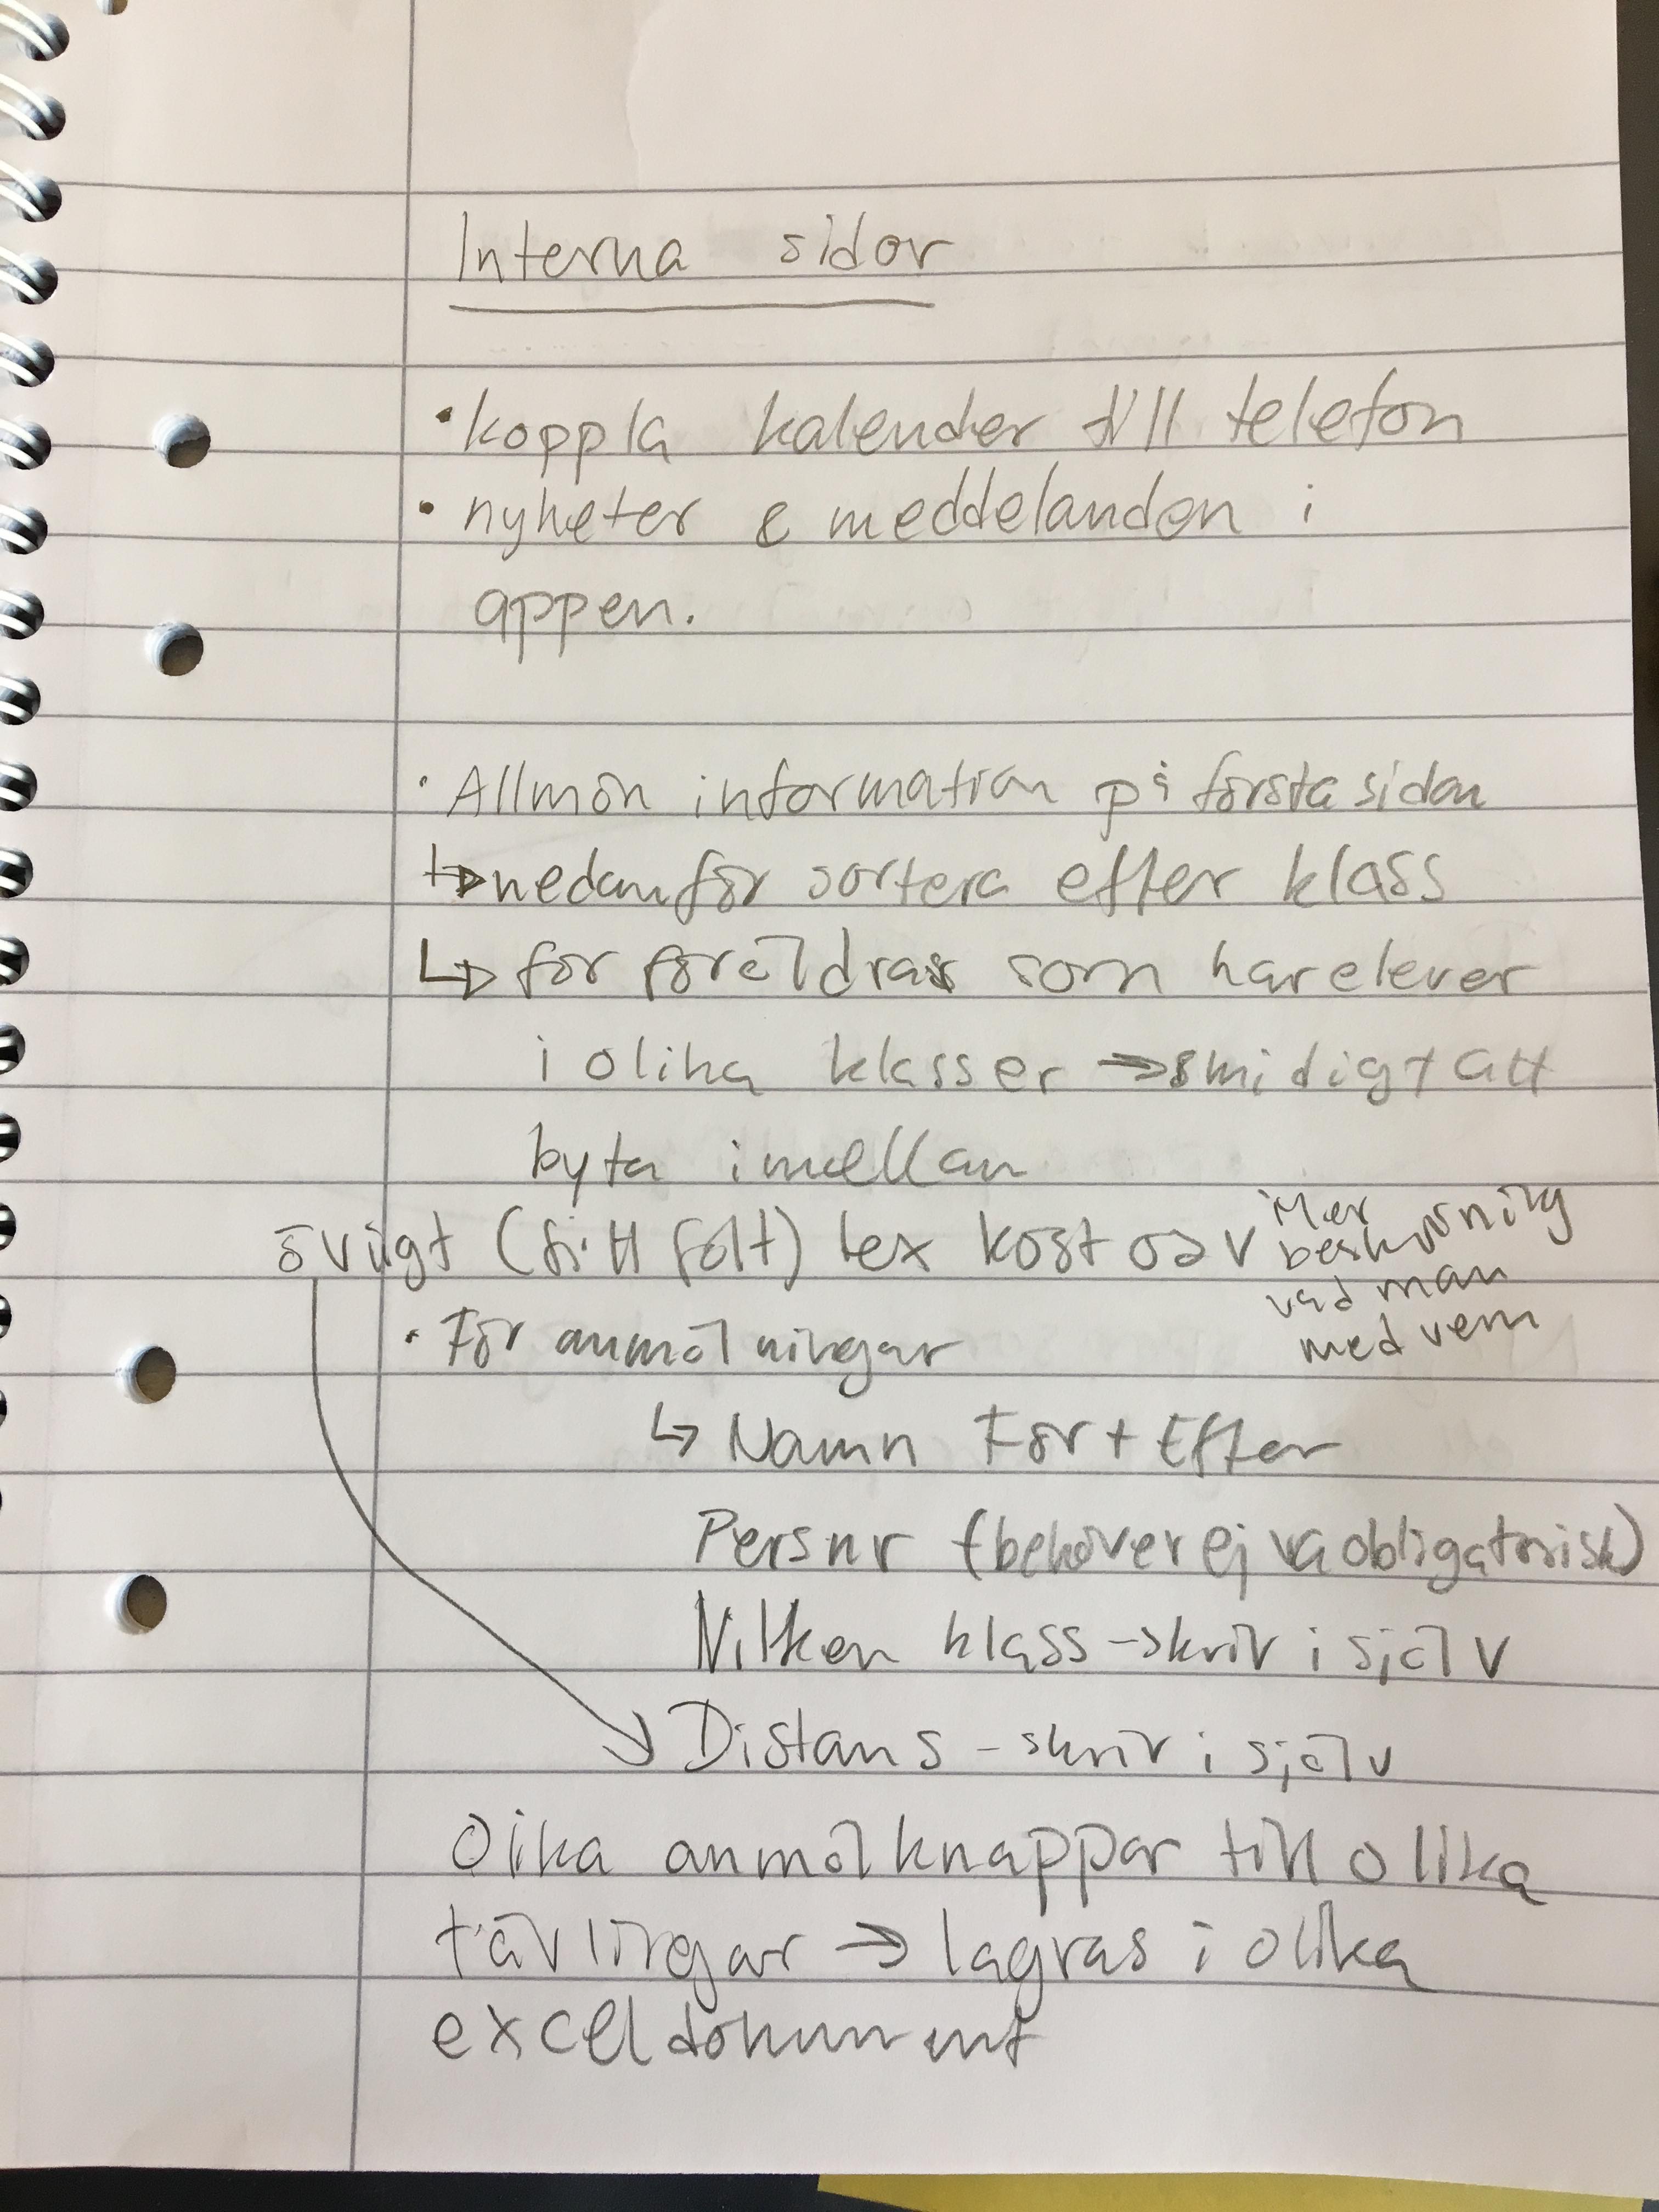 Interna sidor
• koppla kalender till telefon
• nyheter & meddelanden i
appen.
• Allmän information på första sidan
↳ nedanför sortera efter klass
↳ för föräldrar som har elever
i olika klasser → smidigt att
byta imellan
övrigt (fritt fält) tex kost osv
Mer
beskrivning
vad man
med vem
• För anmälningar
↳ Namn För + Efter
Persnr (behöver ej va obligatorisk)
Vilken klass - skriv i själv
Distans - skriv i själv
Olika anmälknappar till olika
tävlingar → lagras i olika
exceldokument